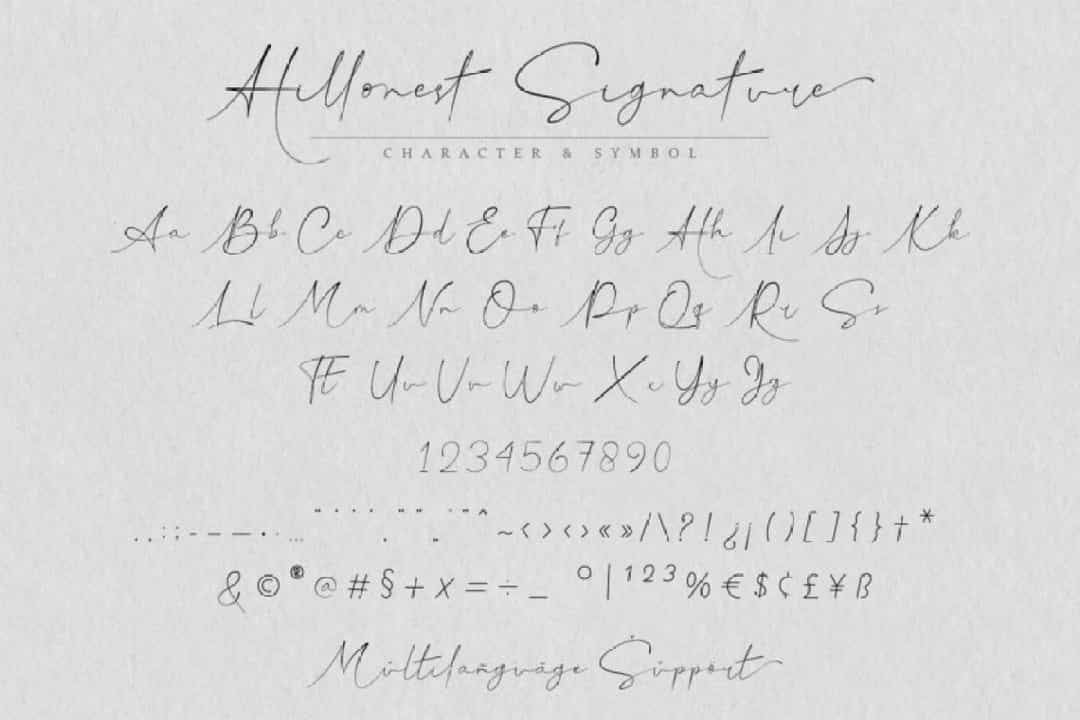 Hillonest Signature
CHARACTER & SYMBOL
Aa Bb Cc Dd Ee Ff Gg Hh Ii Jj Kk
Ll Mm Nn Oo Pp Qq Rr Ss
Tt Uu Vv Ww Xx Yy Zz
1234567890
. , : ; - – — · … ~ ‹ › < > « » / \ ? ! ¿ ¡ ( ) [ ] { } † *
& © ® @ # § + x = ÷ _ ° | ¹ ² ³ % € $ ¢ £ ¥ ß
Múltilañguäge Śüppört